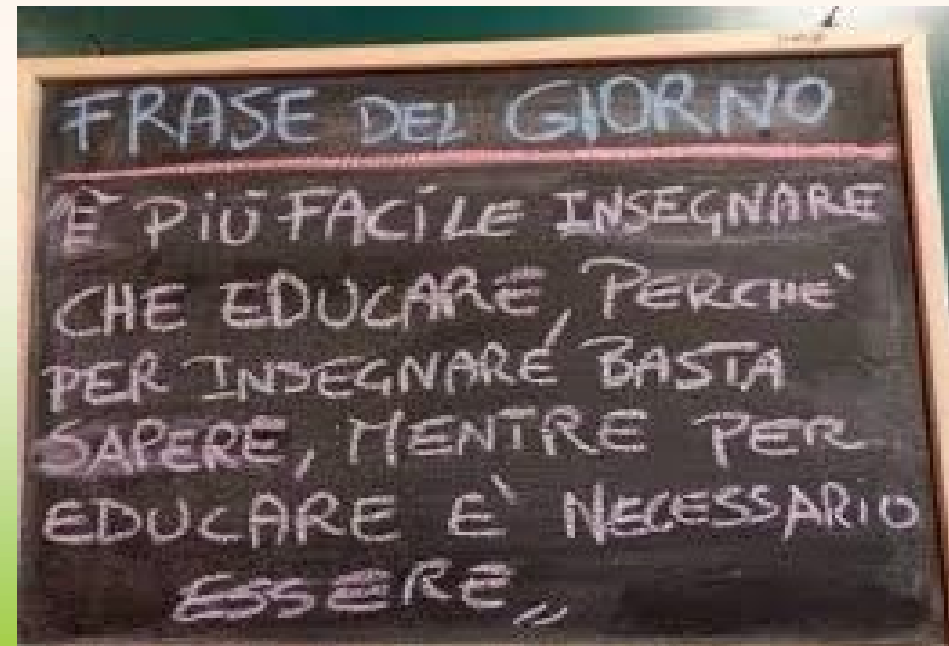 FRASE DEL GIORNO
"È PIÙ FACILE INSEGNARE
CHE EDUCARE, PERCHE'
PER INSEGNARE BASTA
SAPERE, MENTRE PER
EDUCARE E' NECESSARIO
ESSERE"